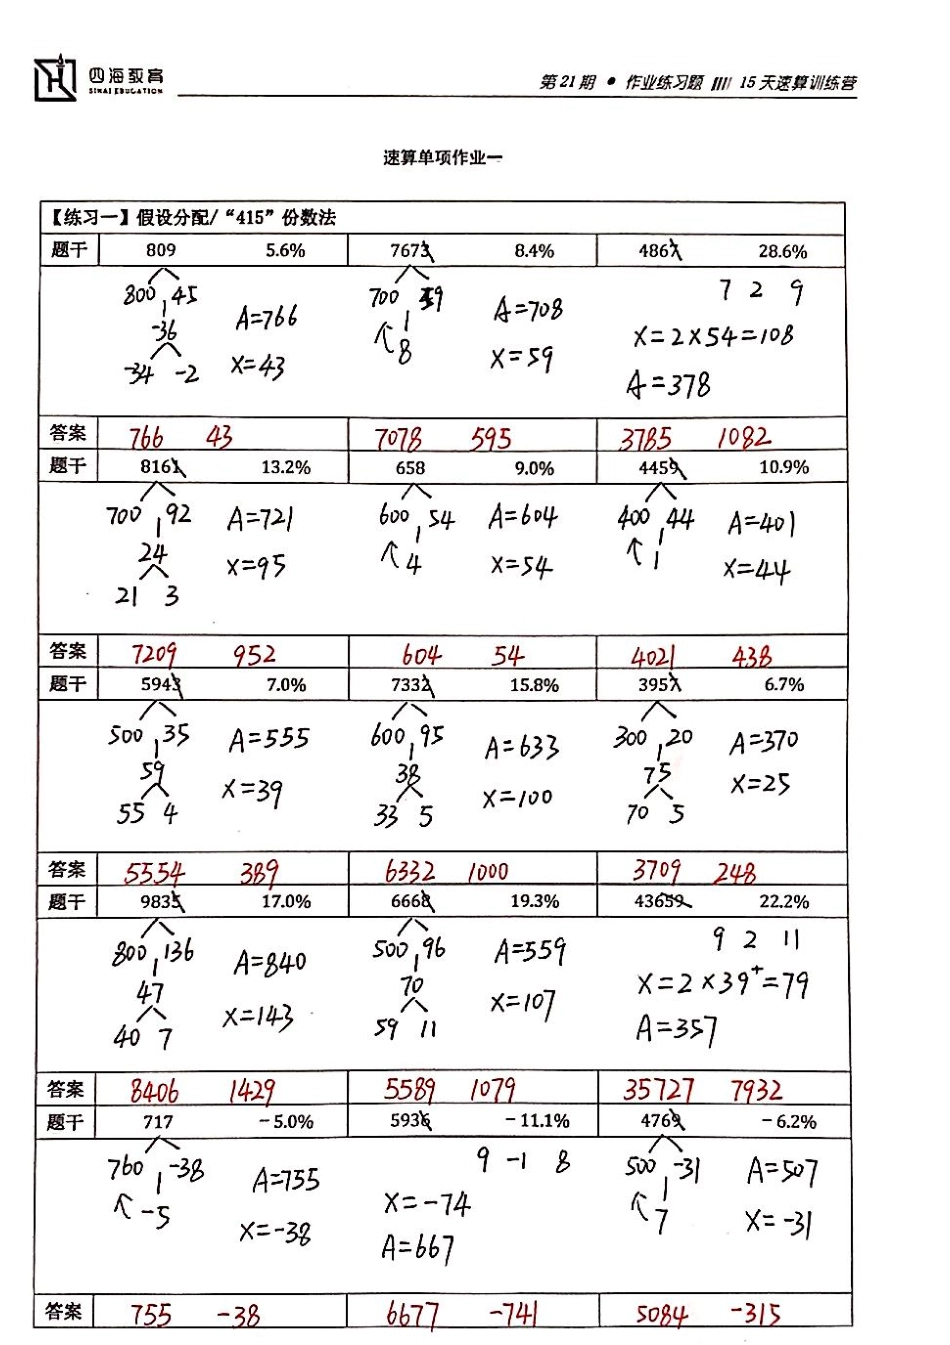 四海教育
SIHAI EDUCATION
第21期 ● 作业练习题 //// 15天速算训练营
速算单项作业一
【练习一】假设分配/“415”份数法
题干 809 5.6% 7673 8.4% 4867 28.6%
800 45 700 59 7 2 9
-36 A=766 8 A=708 X=2×54=108
-34 -2 X=43 X=59 A=378
答案 766 43 7078 595 3785 1082
题干 8161 13.2% 658 9.0% 4459 10.9%
700 92 A=721 600 54 A=604 400 44 A=401
24 X=95 4 X=54 1 X=44
21 3
答案 7209 952 604 54 4021 438
题干 5943 7.0% 7332 15.8% 3957 6.7%
500 35 A=555 600 95 A=633 300 20 A=370
59 X=39 38 X=100 75 X=25
55 4 33 5 70 5
答案 5554 389 6332 1000 3709 248
题干 9835 17.0% 6668 19.3% 43659 22.2%
800 136 A=840 500 96 A=559 9 2 11
47 X=143 70 X=107 X=2×39⁺=79
40 7 59 11 A=357
答案 8406 1429 5589 1079 35727 7932
题干 717 -5.0% 5936 -11.1% 4769 -6.2%
760 -38 A=755 9 -1 8 500 -31 A=507
-5 X=-38 X=-74 7 X=-31
A=667
答案 755 -38 6677 -741 5084 -315